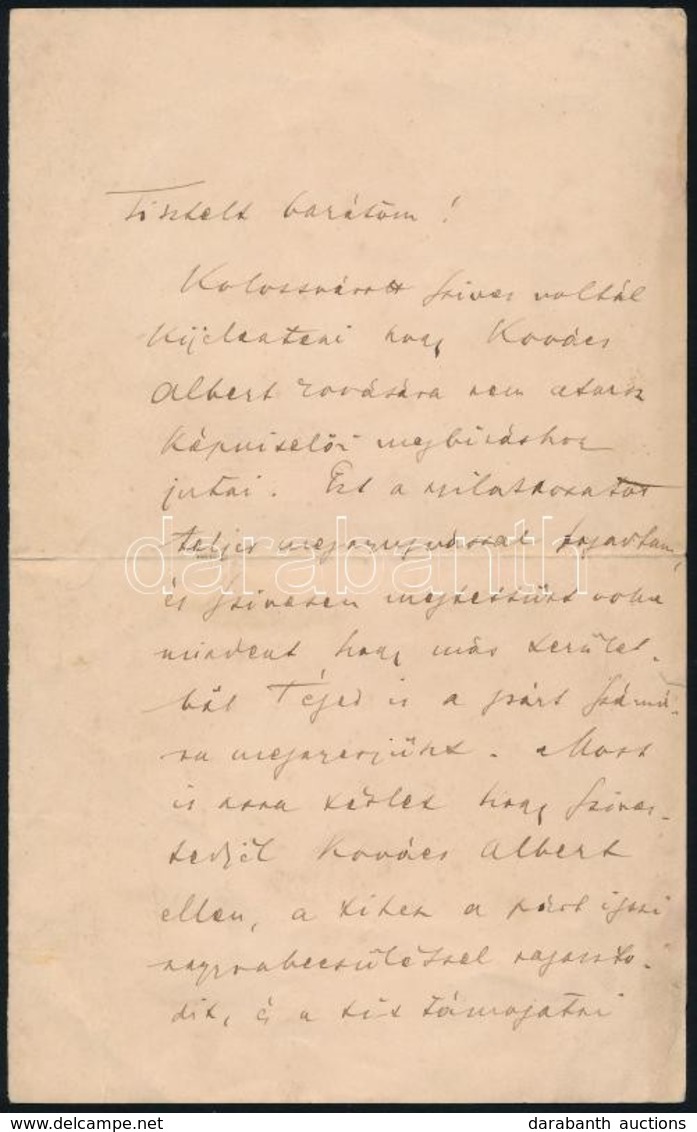 Tisztelt barátom!
Kolossvárott szives voltál
kijelenteni hogy Kovács
Albert rovására nem akarsz
képviselői megbizáshoz
jutni. Ezt a nyilatkozatot
teljes megnyugvással fogadtam,
és szivesen megtettünk volna
mindent, hogy más kerület-
ből Téged is a párt számá-
ra megnyerjünk. Most
is arra kérlek hogy
Kovács Albert
ellen, a kihez a párt igazi
nagyrabecsüléssel ragaszko-
dik, és a kit támogatni
darabanth
darabanth auctions